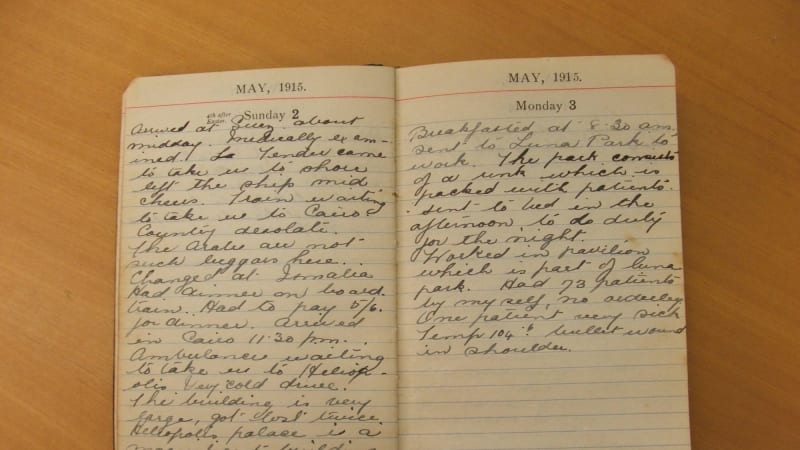 MAY, 1915.
4th after Easter. Sunday 2
Arrived at Suez about
midday. Medically exam-
ined. La Tender came
to take us to shore
left the ship mid
cheers. Train waiting
to take us to Cairo
County desolate.
The Arabs are not
such beggars here.
Changed at Ismalia
Had dinner on board
train. Had to pay 5/6.
for dinner. Arrived
in Cairo 11.30 p.m.
Ambulances waiting
to take us to Heliop-
olis Very cold drive.
The building is very
large, got lost twice.
Heliopolis palace is a
MAY, 1915.
Monday 3
Breakfasted at 8.30 am.
sent to Luna Park to
work. The park consists
of a rink which is
packed with patients.
Sent to bed in the
afternoon, to do duty
for the night.
Worked in pavilion
which is part of luna
park. Had 73 patients
by my self, no orderley
One patient very sick
Temp 104.6 bullet wound
in shoulder.